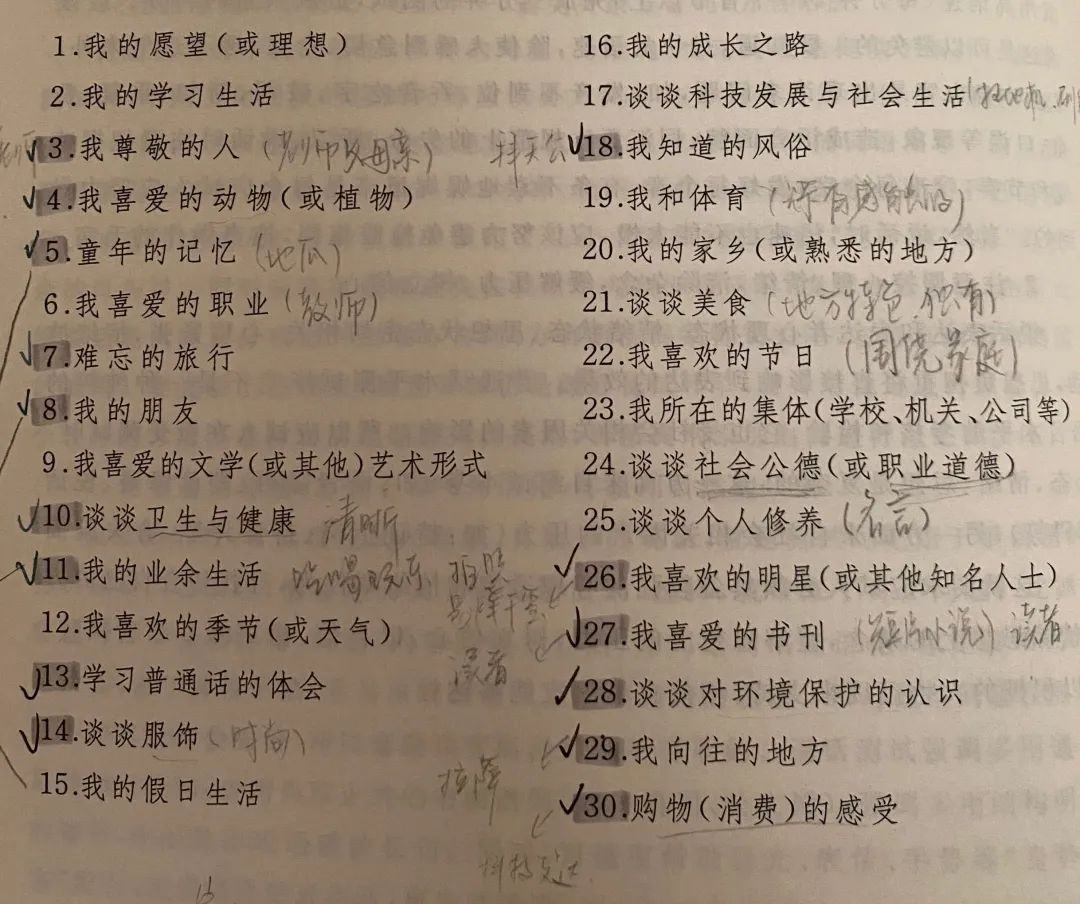 1.我的愿望(或理想)
2.我的学习生活
3.我尊敬的人(老师父母亲)
4.我喜爱的动物(或植物)
5.童年的记忆(地瓜)
6.我喜爱的职业(教师)
7.难忘的旅行
8.我的朋友
9.我喜爱的文学(或其他)艺术形式
10.谈谈卫生与健康 清晰
11.我的业余生活
12.我喜欢的季节(或天气)
13.学习普通话的体会
14.谈谈服饰(时尚)
15.我的假日生活
16.我的成长之路
17.谈谈科技发展与社会生活
18.我知道的风俗
19.我和体育
20.我的家乡(或熟悉的地方)
21.谈谈美食(地方特色.独有)
22.我喜欢的节日(围绕家庭)
23.我所在的集体(学校、机关、公司等)
24.谈谈社会公德(或职业道德)
25.谈谈个人修养(名言)
26.我喜欢的明星(或其他知名人士)
27.我喜爱的书刊(短片小说)读者
28.谈谈对环境保护的认识
29.我向往的地方
30.购物(消费)的感受
拍照
科技发达